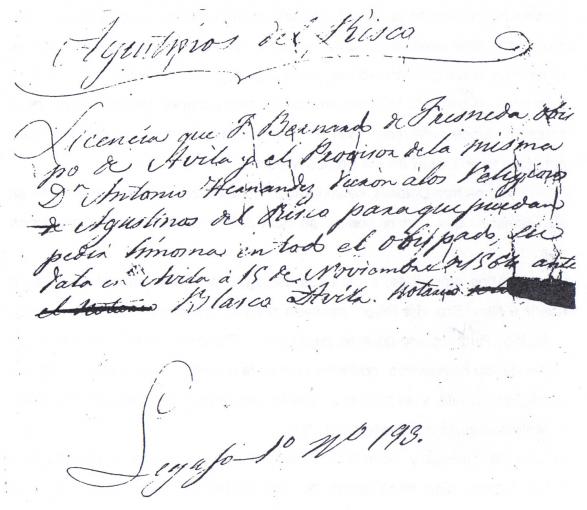 Agustinos del Risco
Licencia que F. Bernardo de Fresneda obis
po de Avila y el Provisor de la misma
Dn Antonio Hernandez dieron á los Religiosos
de Agustinos del Risco para que puedan
pedir limosna en todo el obispado, su
data en Avila á 15 de Noviembre de 1564 ante
el Notario Blasco Davila. Notario
Legajo 1º Nº 193.